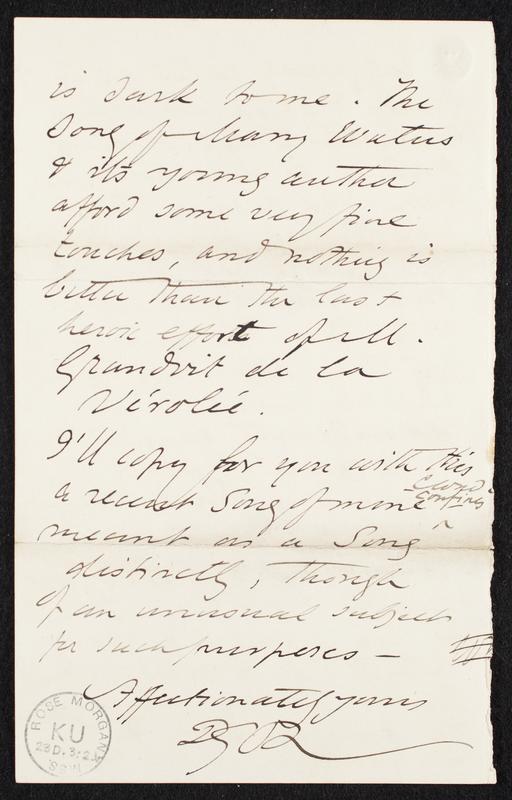 is dark to me. The
Song of Many Waters
& its young author
afford some very fine
touches, and nothing is
better than the last
heroic effort of M.
Grandvit de la
Vérolée.
I'll copy for you with this
a recent Song of mine ‸ Cloud Confines
meant as a Song
distinctly, though
of an unusual subject
for such purposes —
Affectionately yours
DGR
ROSE MORGAN
KU
MSS.